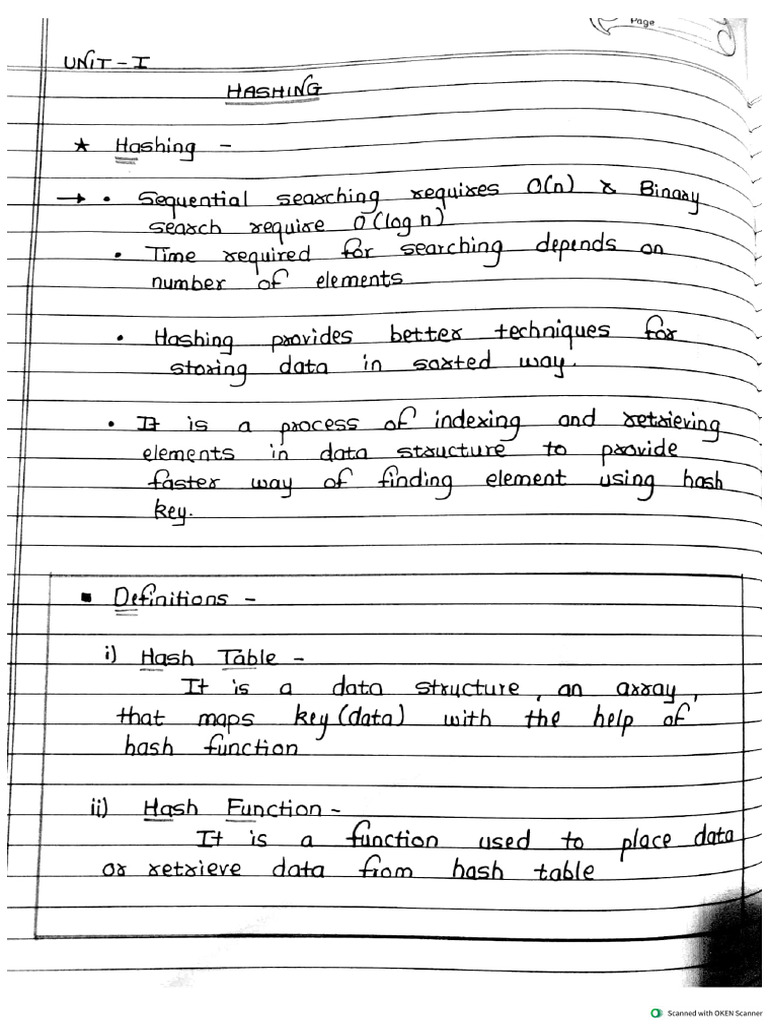 Page
UNIT - I
HASHING
★ Hashing -
→ • Sequential searching requires O(n) & Binary
search require O(log n)
• Time required for searching depends on
number of elements
• Hashing provides better techniques for
storing data in sorted way.
• It is a process of indexing and retrieving
elements in data structure to provide
faster way of finding element using hash
key.
▪ Definitions -
i) Hash Table -
It is a data structure, an array,
that maps key (data) with the help of
hash function
ii) Hash Function -
It is a function used to place data
or retrieve data from hash table
Scanned with OKEN Scanner